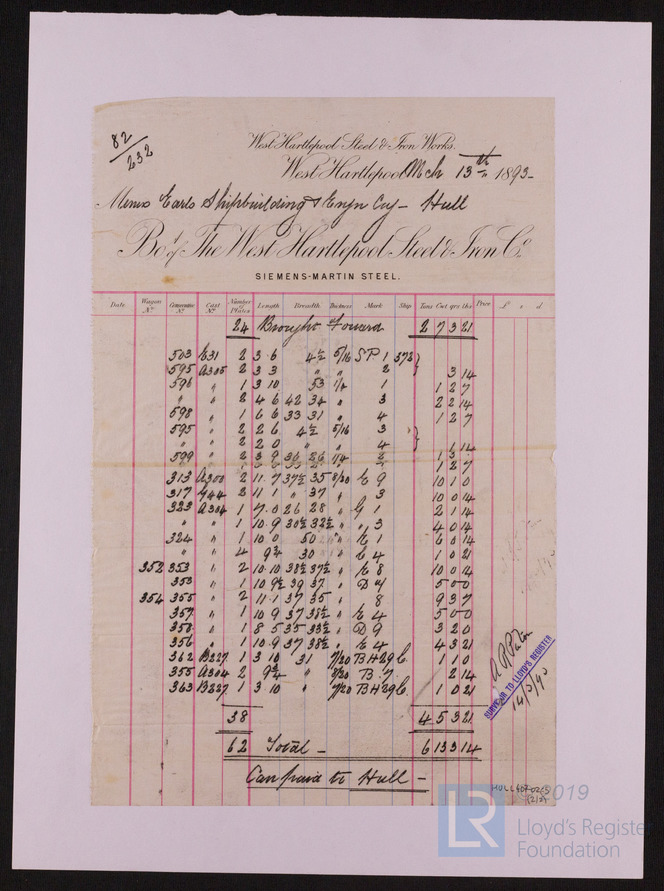 82
232
West Hartlepool Steel & Iron Works.
West Hartlepool Mch 13th 1893-
Messrs Earle Shipbuilding & Engn Coy - Hull
Bot of The West Hartlepool Steel & Iron Co.
SIEMENS-MARTIN STEEL.
Date Wagon No. Consecutive No. Cast No. Number of Plates Length Breadth Thickness Mark Ship Tons Cwt qrs lbs Price £ s d
24 Brought Forward 2 7 3 21
503 E31 2 3 6 4½ 5/16 SP 1 372
595 A305 2 3 3 " " 2 3 14
596 " 1 3 10 53 1/4 1 1 2 7
" " 2 4 6 42 34 " 3 2 2 14
598 " 1 6 6 33 31 " 4 1 2 7
595 " 2 2 6 4½ 5/16 3
" " 2 2 0 " " 4 1 14
599 " 2 3 9 36 26 1/4 2 1 3
1 2 7
313 A300 2 11 7 37½ 35 8/20 E 9 10 1 0
317 G44 2 11 1 " 37 " 3 10 0 14
323 A304 1 7 0 26 28 " G 1 2 1 14
" " 1 10 9 30½ 32½ " " 3 4 0 14
324 " 1 10 0 50 " E 1 6 0 14
" " 4 9¾ 30 " E 4 1 0 21
352 353 " 2 10 10 38½ 37½ " E 8 10 0 14
353 " 1 10 9½ 39 37 " D 7 5 0 0
354 355 " 2 11 1 37 35 " 8 9 3 7
357 " 1 10 9 37 38½ " E 4 5 0 0
358 " 1 8 5 35 33½ " D 9 3 2 0
356 " 1 10 9 37 38½ " E 4 4 3 21
362 B227 1 3 10 31 7/20 BH29 C. 1 1 0
355 A304 2 9¾ " 8/20 B. 7 2 14
363 B227 1 3 10 " 7/20 BH29 C. 1 0 21
38 4 5 3 21
62 Total - 6 13 3 14
Carr paid to Hull -
SURVEYOR TO LLOYD'S REGISTER
14/3/93
2019
LR
Lloyd's Register
Foundation